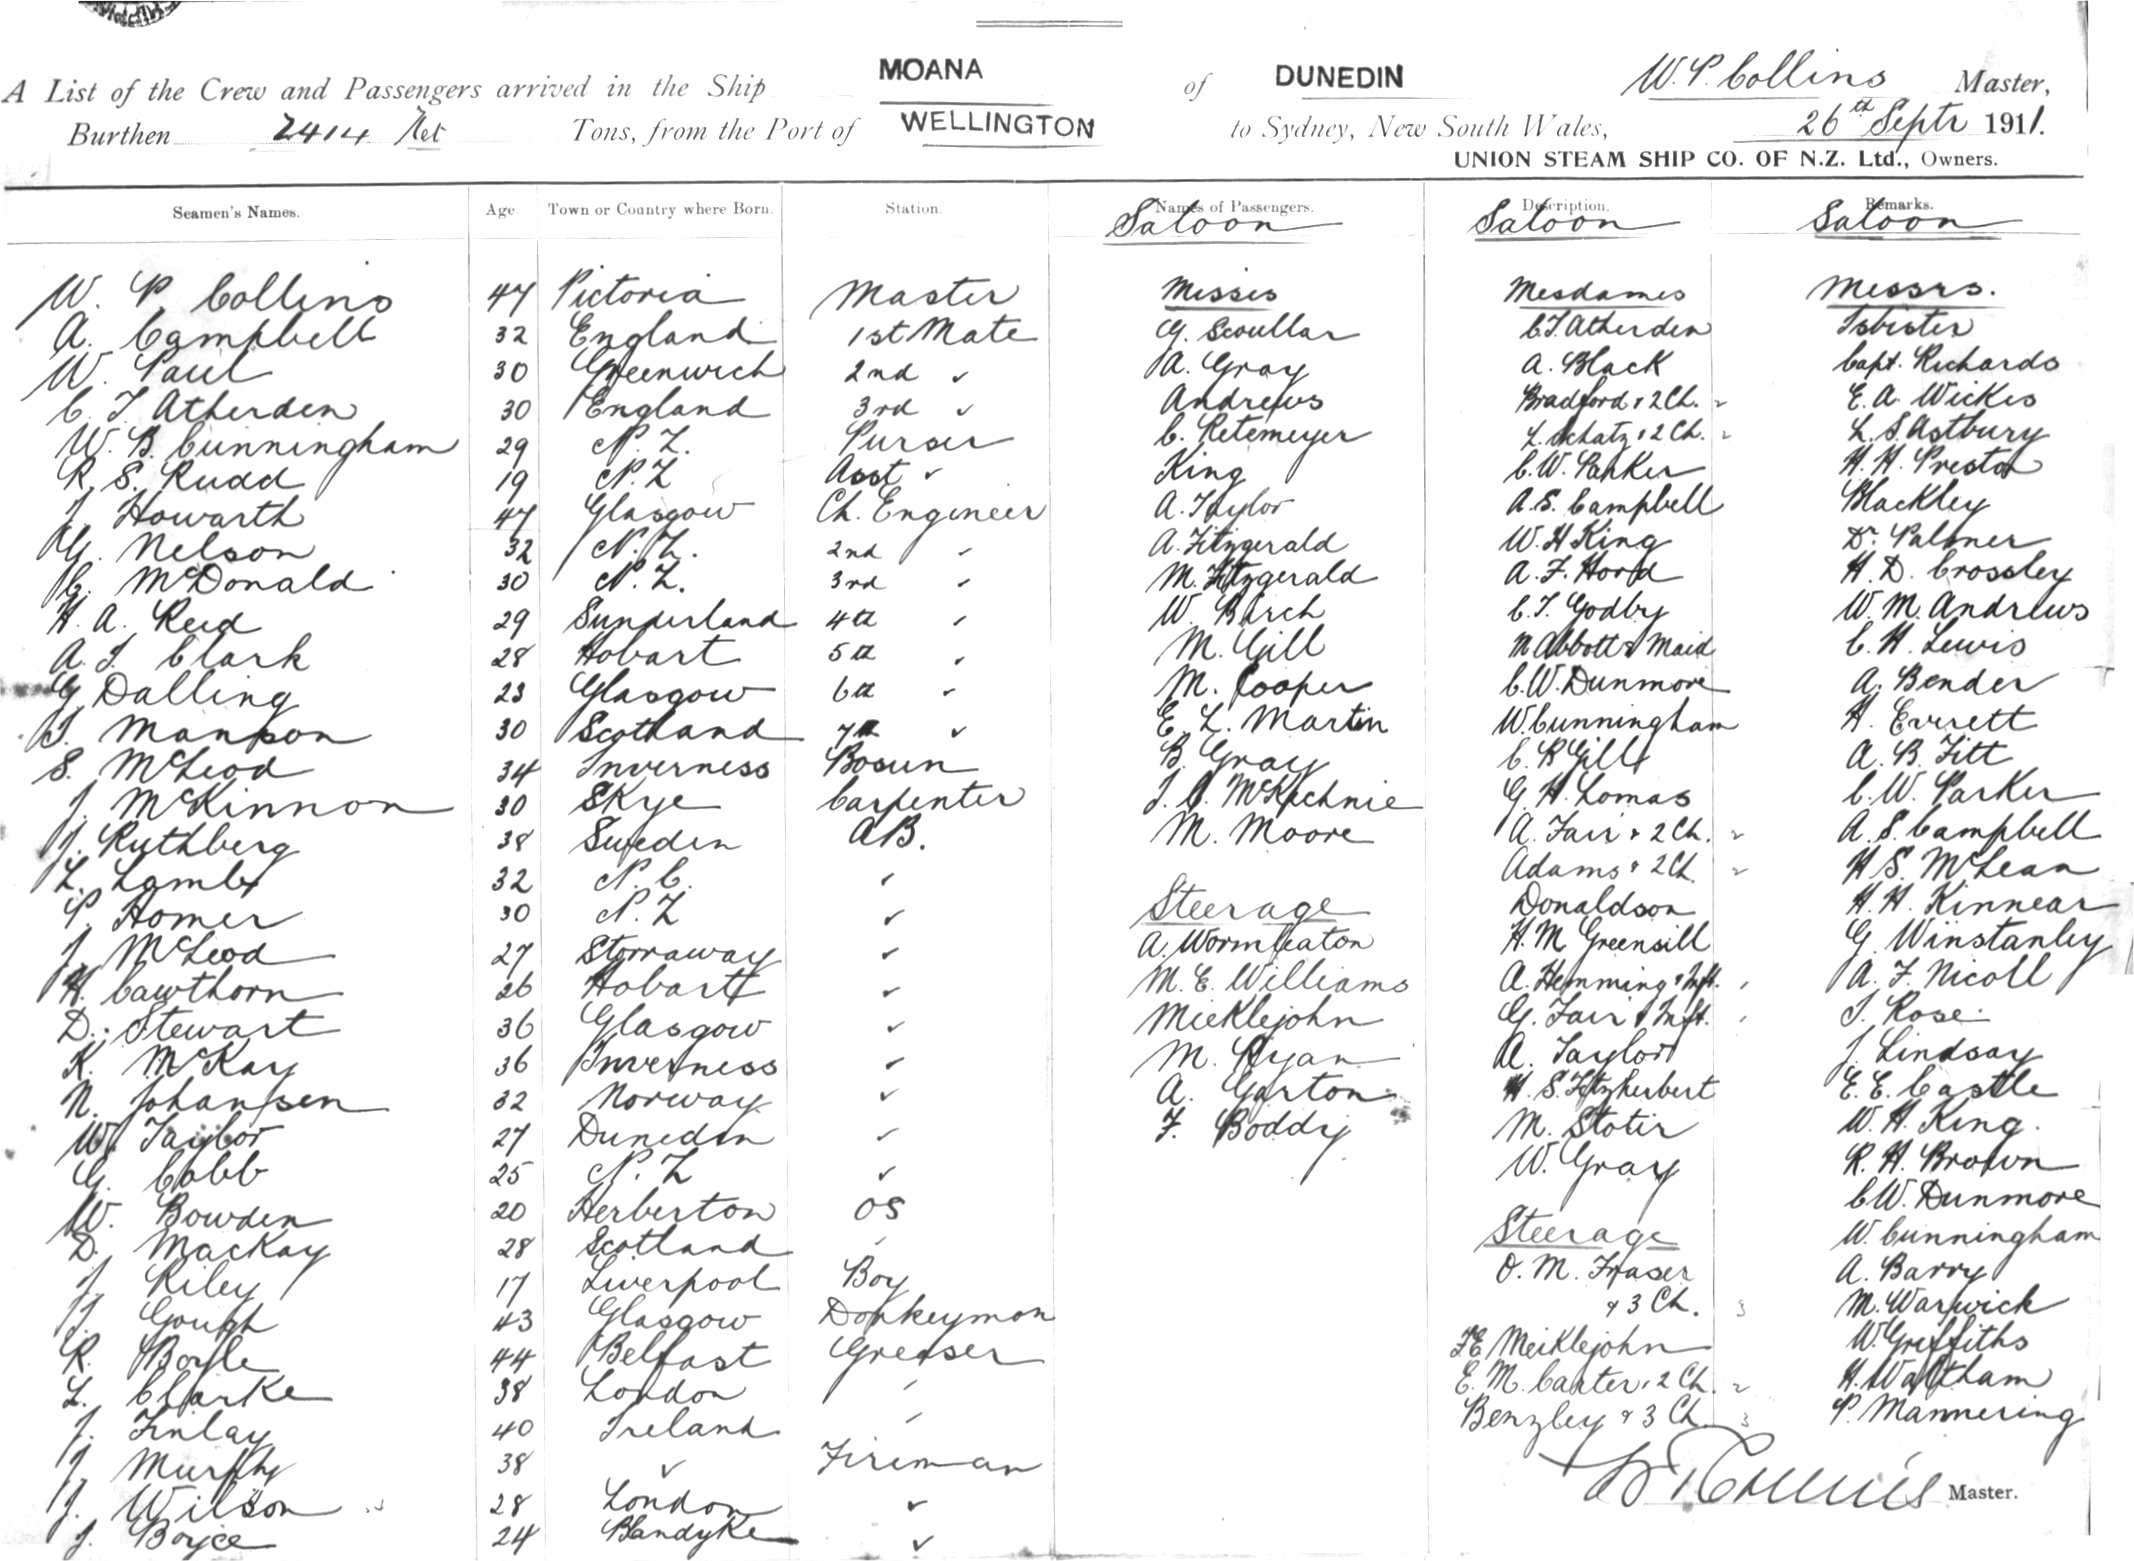 A List of the Crew and Passengers arrived in the Ship MOANA of DUNEDIN W. P. Collins Master,
Burthen 2414 Net Tons, from the Port of WELLINGTON to Sydney, New South Wales, 26th Septr 1911.
UNION STEAM SHIP CO. OF N.Z. Ltd., Owners.
Seamen's Names. Age Town or Country where Born. Station. Names of Passengers. Description. Remarks.
Saloon Saloon Saloon
W. P. Collins 47 Victoria Master Misses Mesdames Messrs.
A. Campbell 32 England 1st Mate G. Scoullar C. T. Atherden Isbister
W. Paul 30 Greenwich 2nd " A. Gray A. Black Capt. Richards
C. T. Atherden 30 England 3rd " Andrews Bradford & 2 Ch. 2 E. A. Wickes
W. B. Cunningham 29 N. Z. Purser C. Petemeyer L. Schatz & 2 Ch. 2 L. S. Astbury
R. S. Rudd 19 N. Z Asst " King C. W. Parker H. H. Preston
J. Howarth 47 Glasgow Ch. Engineer A. Taylor A. S. Campbell Blackley
G. Nelson 32 N. Z. 2nd " A. Fitzgerald W. H King Dr. Palmer
C. McDonald 30 N. Z. 3rd " M. Fitzgerald A. F. Hord H. D. Crossley
H. A. Reid 29 Sunderland 4th " W. Birch C. T. Godby W. M. Andrews
A. J. Clark 28 Hobart 5th " M. Gill M Abbott & Maid C. H. Lewis
G Dalling 23 Glasgow 6th " M. Cooper C. W. Dunmore A. Bender
J. Manson 30 Scotland 7th " E. L. Martin W. Cunningham H. Everett
S. McLeod 34 Inverness Bosun B. Gray C. R Gill A. B. Fitt
J. McKinnon 30 Skye Carpenter J. C. McKechnie G. H. Lomas C. W. Parker
J. Ruthberg 38 Sweden AB. M. Moore A. Fair & 2 Ch. 2 A. S. Campbell
L. Lamb 32 N. C. " Adams & 2 Ch. 2 H S. McLean
P. Homer 30 N. Z " Steerage Donaldson H. H. Kinnear
J. McLeod 27 Storraway " A. Wormleaton H. M Greensill G. Winstanley
H. Cawthorn 26 Hobart " M. E. Williams A. Hemming & Inft. A. F. Nicoll
D. Stewart 36 Glasgow " Mieklejohn G. Fair & Inft. J. Rose
K. McKay 36 Inverness " M. Ryan A. Taylor J. Lindsay
N. Johansen 32 Norway " A. Garton H. S. Fitzherbert E. E. Castle
W. Taylor 27 Dunedin " F. Boddy M. Slater W. H. King.
G. Cobb 25 N. Z " W. Gray R. H. Brown
W. Bowden 20 Herberton OS C W. Dunmore
D. MacKay 28 Scotland " Steerage W. Cunningham
J. Riley 17 Liverpool Boy O. M. Fraser A. Barry
J. Gough 43 Glasgow Donkeyman & 3 Ch. 3 M. Warwick
R. Boyle 44 Belfast Greaser F E Meiklejohn W. Griffiths
L. Clarke 38 London " E. M. Carter & 2 Ch. 2 H. Waltham
J. Finlay 40 Ireland " Benzley & 3 Ch 3 P Mannering
J. Murphy 38 " Fireman
J. Wilson 28 London " Master.
J. Boyce 24 Blandyke "